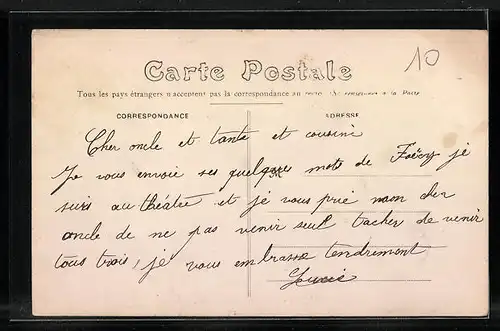 10
Carte Postale
Tous les pays étrangers n'acceptent pas la correspondance au recto. (Se renseigner à la Poste
CORRESPONDANCE
ADRESSE
Cher oncle et tante et cousine
Je vous envoie ses quelques mots de je
suis au théâtre et jé vous prie mon cher
oncle de ne pas venir seul tacher de venir
tous trois, jé vous embrasse tendrement
Lucie